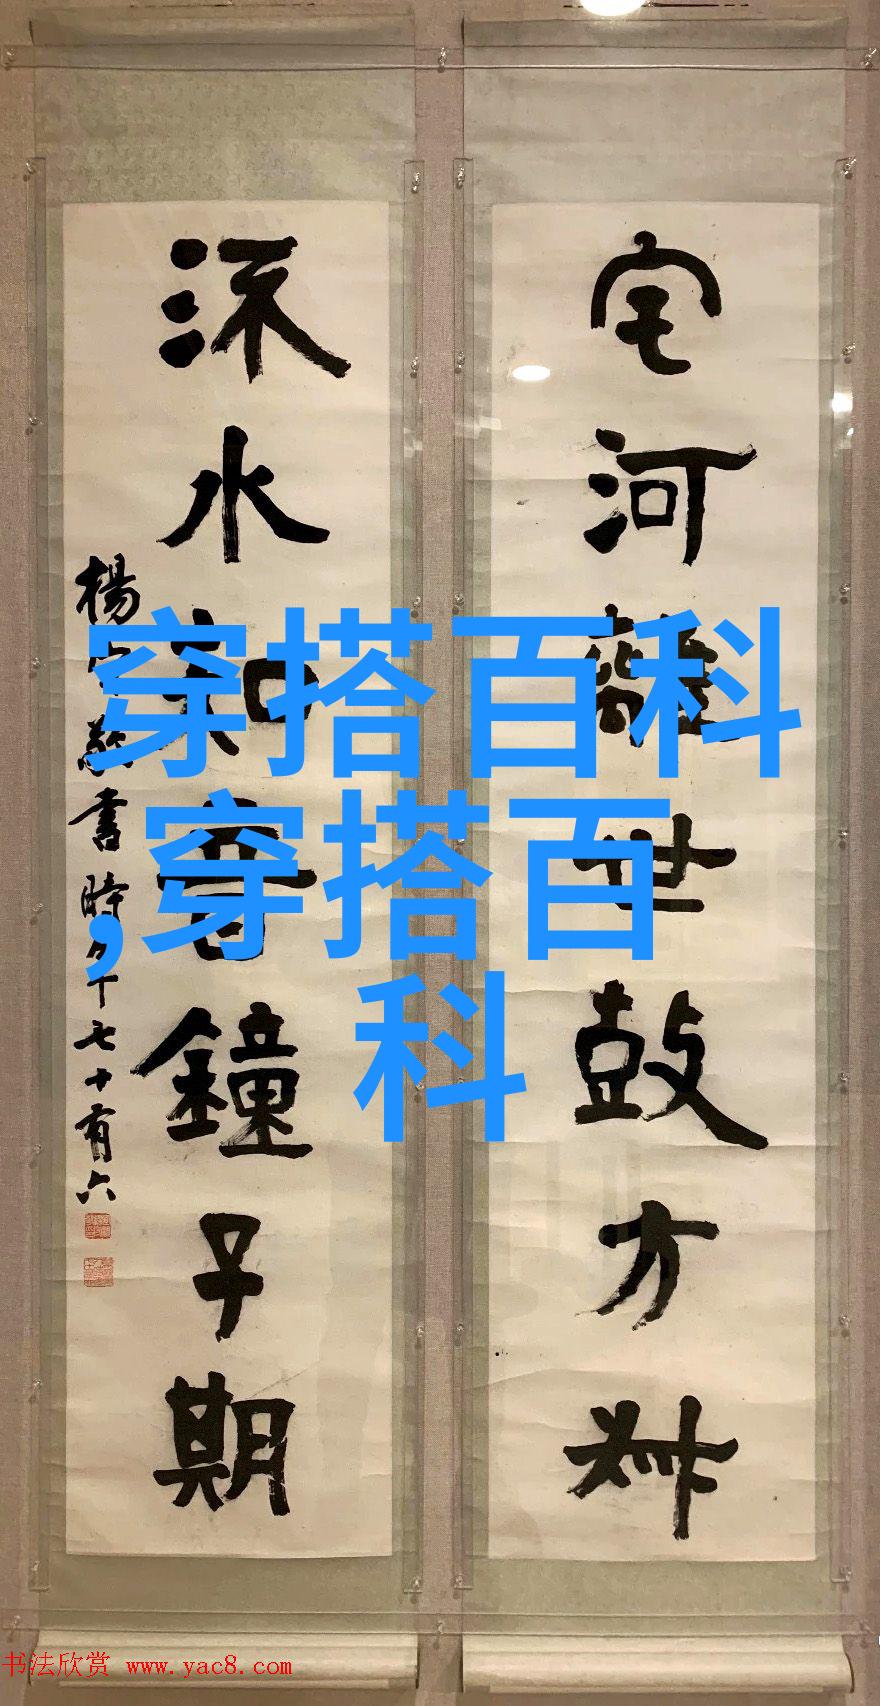 宅河離世鼓方叔
流水知音鐘子期
楊守敬書時年七十有六
穿搭百科
,穿搭百
科
书法欣赏 www.yac8.com